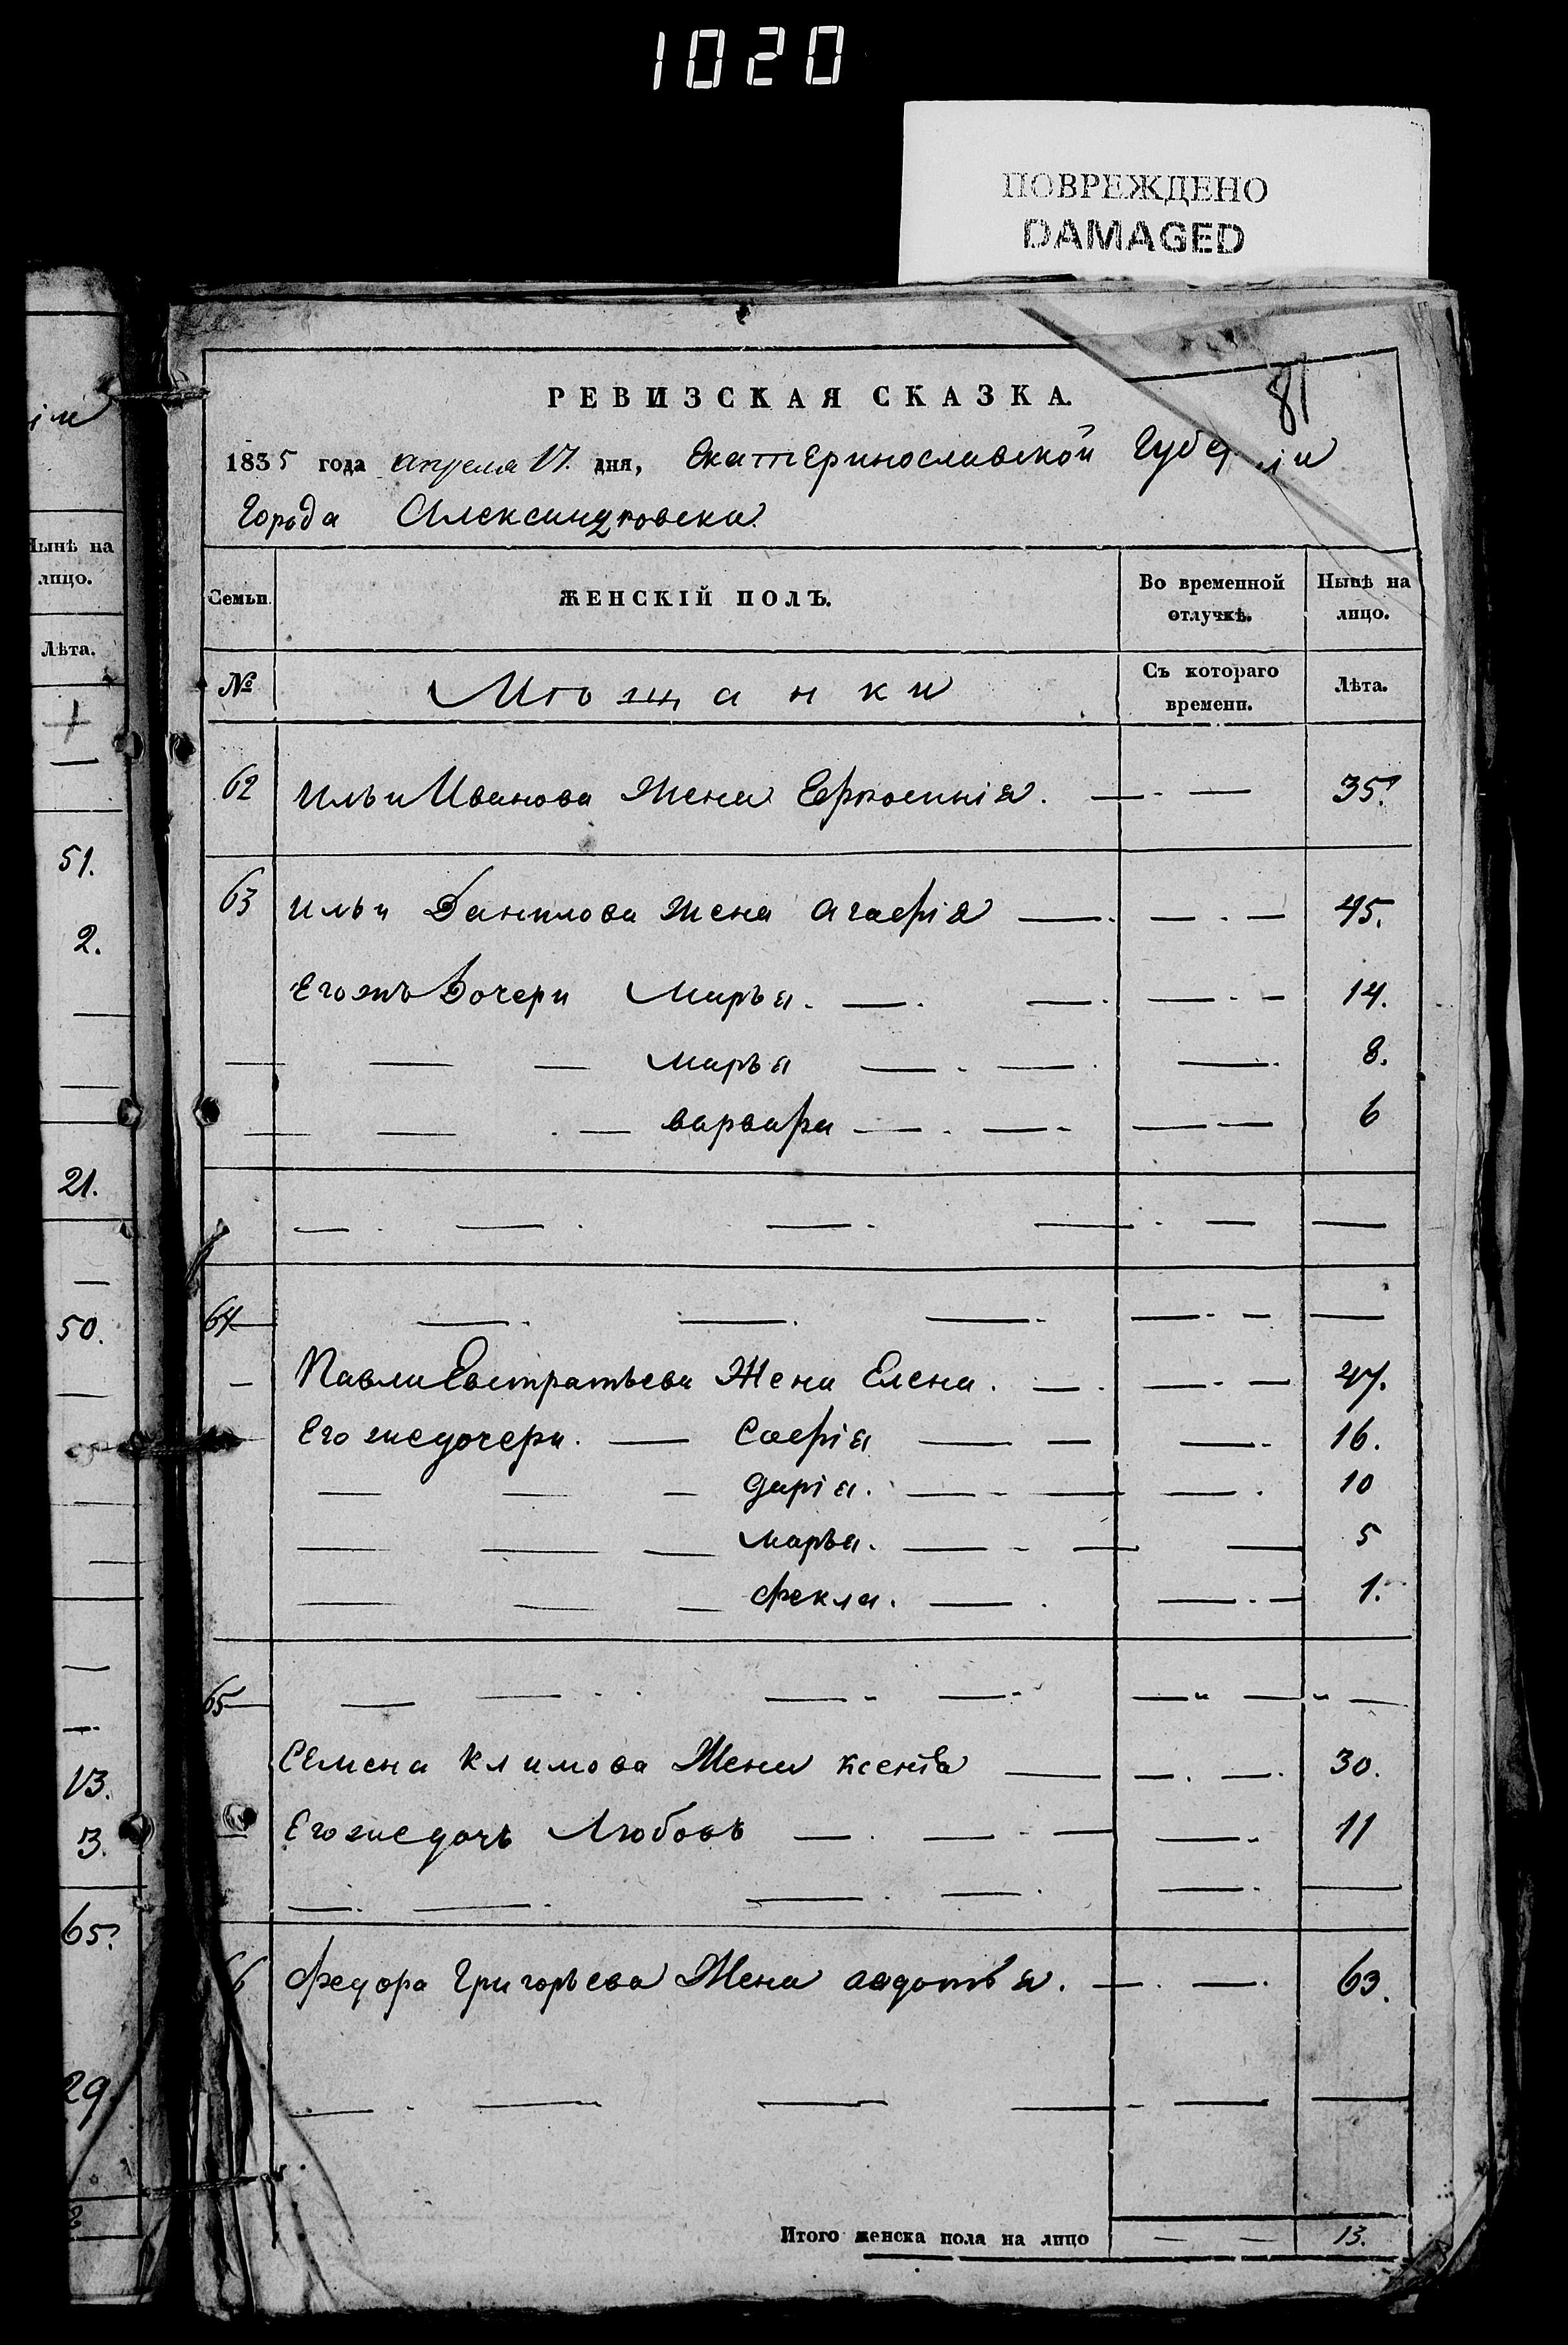 1020
ПОВРЕЖДЕНО
DAMAGED
81
РЕВИЗСКАЯ СКАЗКА.
1835 года апреля 17. дня, Екатеринославской Губерніи
Города Александровска
Нынѣ на
лицо.
Лѣта.
51.
2.
21.
50.
13.
3.
65.
29
Семьи.
ЖЕНСКІЙ ПОЛЪ.
Во временной
отлучкѣ.
Нынѣ на
лицо.
№
Мѣщанки
Съ котораго
времени.
Лѣта.
62 Ильи Иванова Жена Ефросинія. — . — 35.
63 Ильи Данилова жена Агафія — . — . — 45.
Егожъ Дочери Марья. — . — . — . — 14.
— — — марья — . — . — . 8.
— — . — варвара — . — . — — 6
— . — . — . — . — —
64 — — . — . — . — . — —
— Павла Евстратьева Жена Елена. — . — . — 47.
Его жедочери. — Софія — — — . 16.
— — — дарія. — . — — . 10
— — — марья. — . — — 5
— — — Фекла. — . — . — 1.
65 — — — . . — . — . — „ — „ —
Семена Климова Жена ксенія — — . — . 30.
— Его жедочь Любовь — . — . — — . 11
— . — . — . — . — . —
66 Федора Григорьева Жена авдотья. — . — . 63.
— . — — — . — —
Итого женска пола на лицо — — 13.